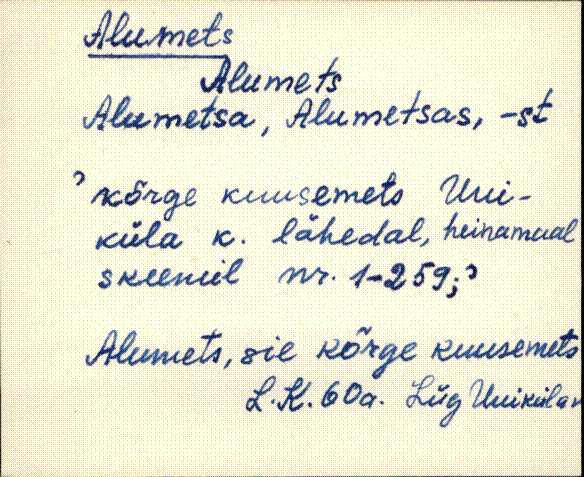 Alumets
Alumets
Alumetsa, Alumetsas, -st
? kõrge kuusemets Uui-
küla k. lähedal, heinamaal
skeemil nr. 1-259;?
Alumets, sie kõrge kuusemets
L.K. 60a. Lüg Uuiküla